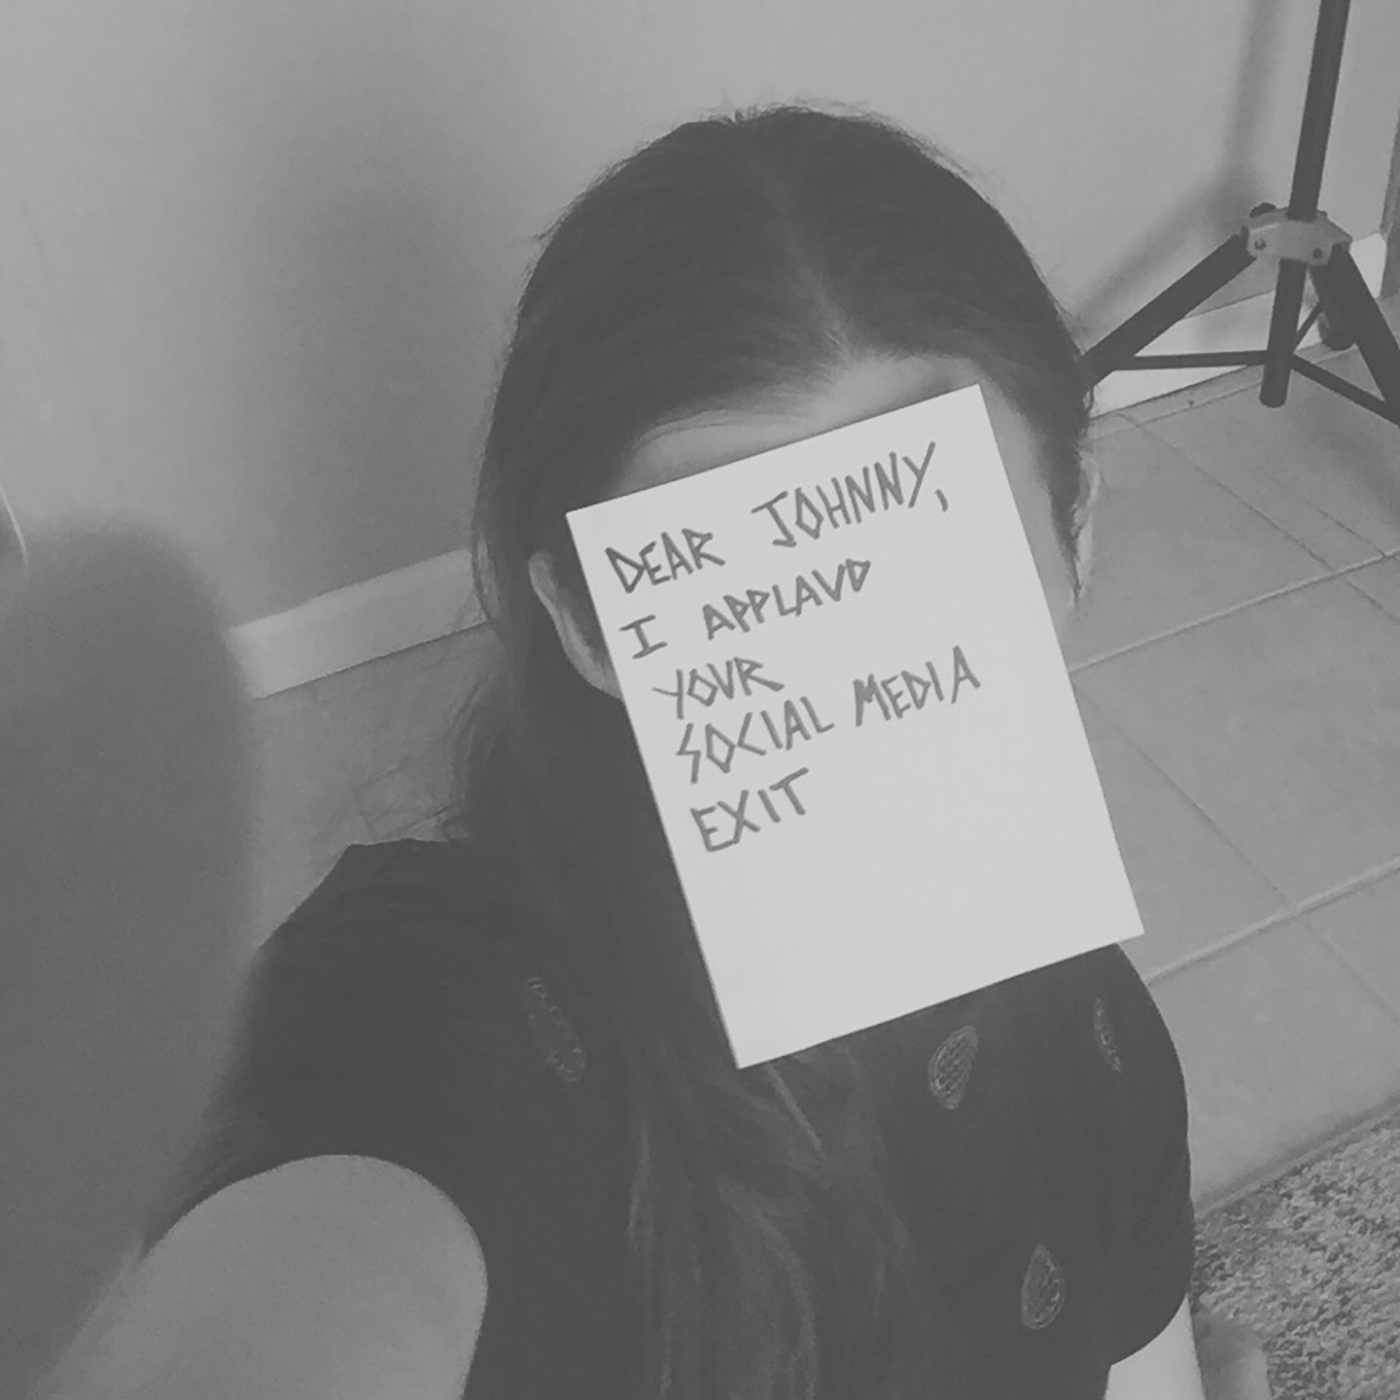 DEAR JOHNNY,
I APPLAUD
YOUR
SOCIAL MEDIA
EXIT